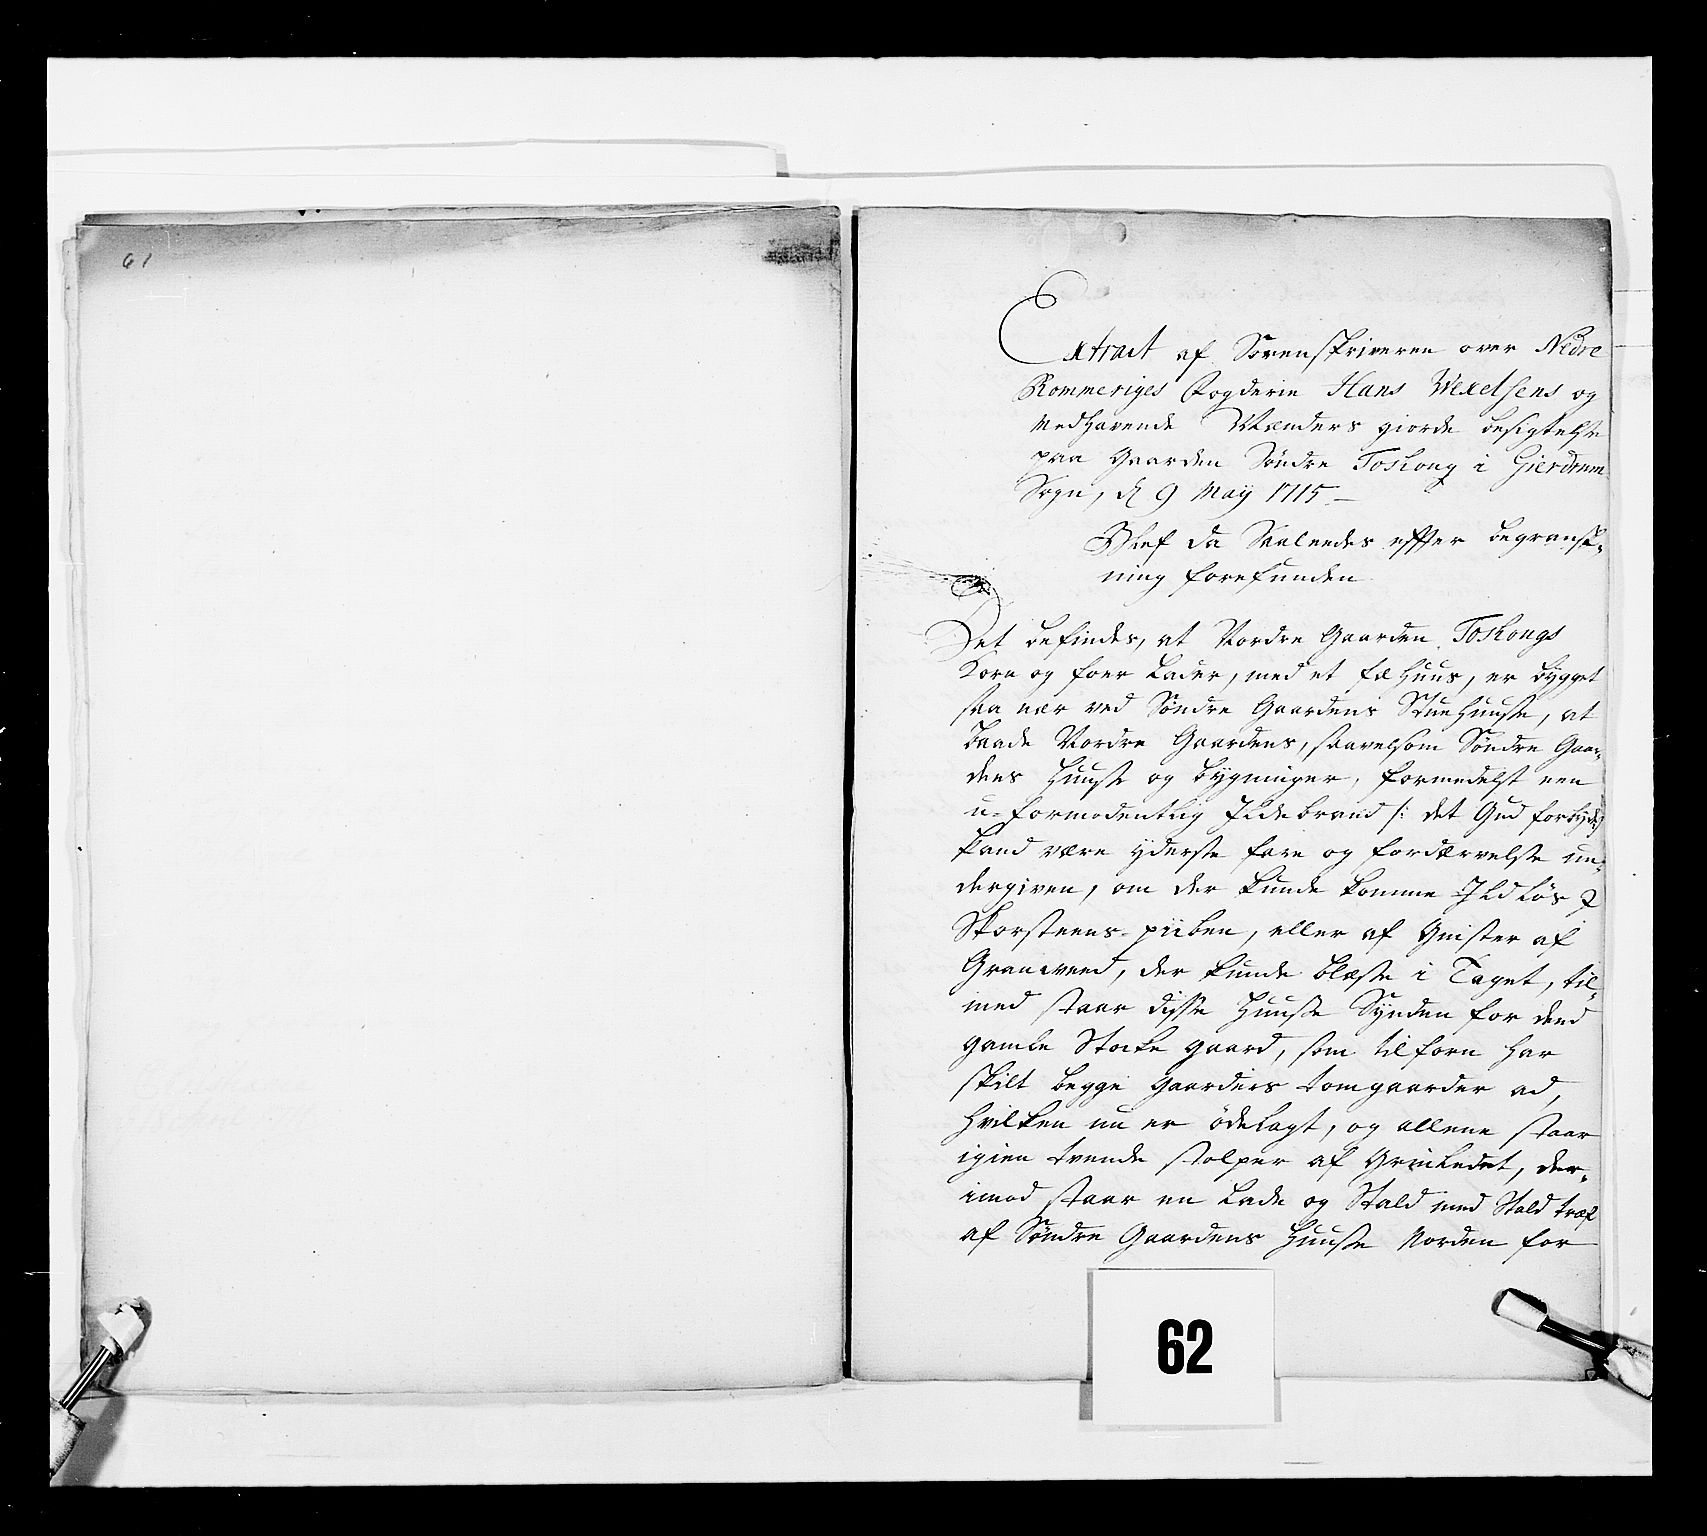 61
Extract af Sorenskriveren over Nedre
Rommeriges Fogderie Hans Wexelsens og
medhavende Mænders giorde besigtelse
paa Gaarden Søndre Toskong i Gierdrum
Sogn, d 9 Maÿ 1715
Blef da Saaleedes effter begransk-
ning forefunden
Det befindes, at Nordre Gaarden Toskongs
Korn og foer Lader, med et fæhuus, er bÿgget
saa nær ved Søndre Gaardens Stuehuuse, at
baade Nordre Gaardens, saavelsom Søndre Gaar-
dens Huuse og bÿgninger, formedelst een
u-formodentlig Ildebrand /: det Gud forbyde
kand være yderste fare og fordærvelse un-
dergiven, om der kunde komme Ild løs i
Skorsteens-piiben, eller af Gnister af
Graneveed, der kunde blæse i Taget, til-
med staar disse Huuse Synden for dend
gamle Stocke gaard, som tilforn har
skilt begge Gaarders tomgaarder ad,
hvilken nu er ødelagt, og allene staar
igien tvende stolper af Grinledet, der-
imod staar en Lade og Stald med Stald træf
af Søndre Gaardens Huuse Norden for
62